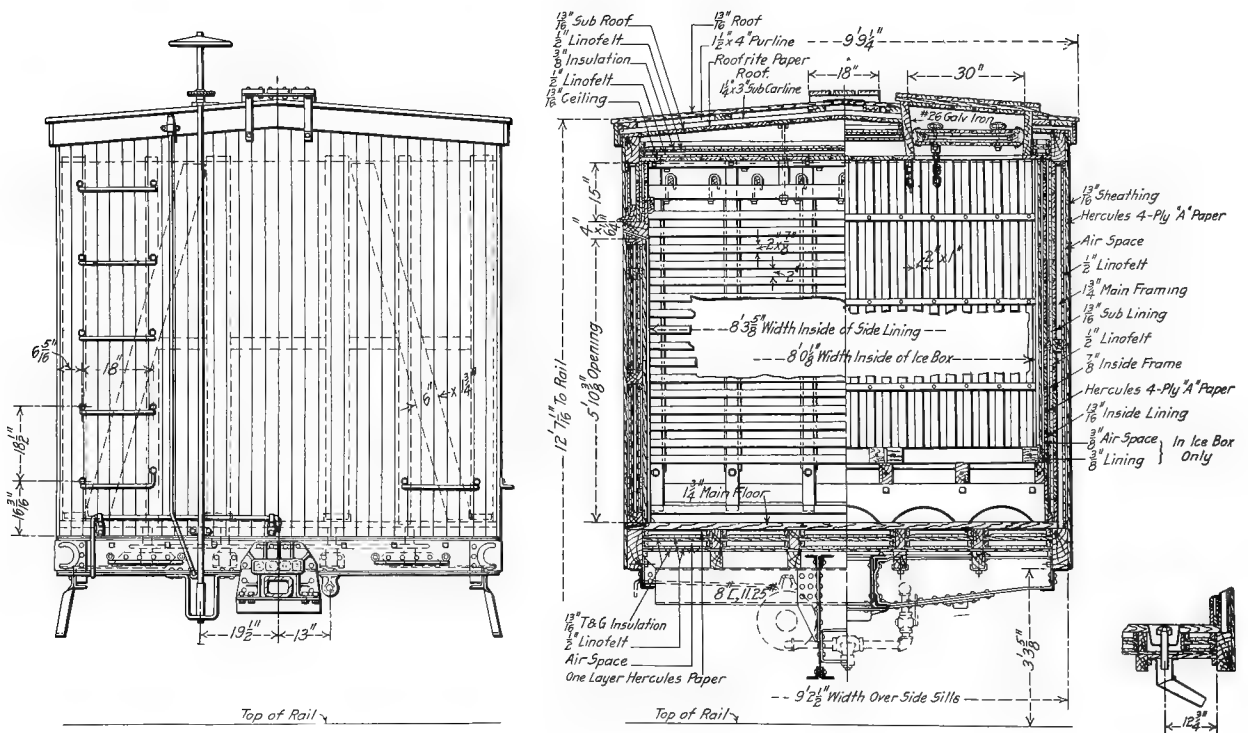 6 5/16"
18"
18 1/2"
16 3/16"
6" x 1 3/4"
19 1/2"
13"
Top of Rail
13/16" Sub Roof
1/2" Linofelt
3/8" Insulation
1/2" Linofelt
13/16" Ceiling
13/16" Roof
1 1/2" x 4" Purline
Roofrite Paper
Roof.
1 1/4" x 3" Sub Carline
9' 9 1/4"
18"
30"
#26 Galv Iron
15"
2" x 7/8"
2"
2" x 1"
8' 3 5/8" Width Inside of Side Lining
8' 0 1/8" Width Inside of Ice Box
12' 7 1/16" To Rail
5' 10 3/8" Opening
1 3/4" Main Floor
13/16" Sheathing
Hercules 4-Ply "A" Paper
Air Space
1/2" Linofelt
1 3/4" Main Framing
13/16" Sub Lining
1/2" Linofelt
7/8" Inside Frame
Hercules 4-Ply "A" Paper
13/16" Inside Lining
3/8" Air Space
3/8" Lining
In Ice Box
Only
8" [, 11.25#
13/16" T&G Insulation
1/2" Linofelt
Air Space
One Layer Hercules Paper
3' 3 5/8"
9' 2 1/2" Width Over Side Sills
Top of Rail
12 3/4"